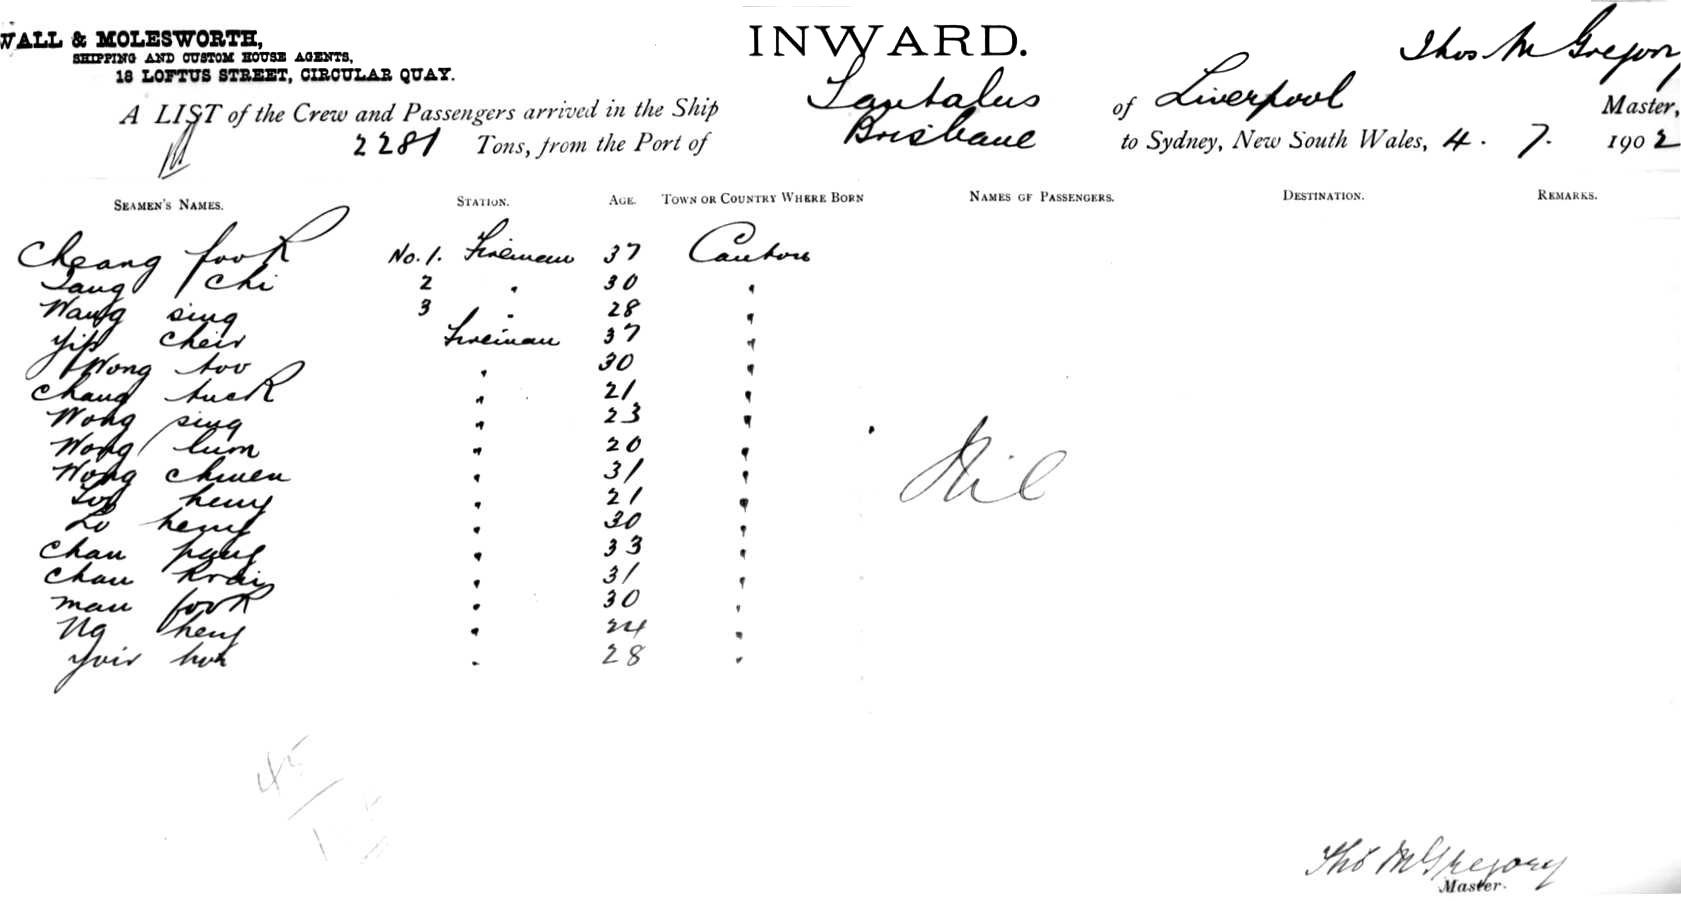 WALL & MOLESWORTH,
SHIPPING AND CUSTOM HOUSE AGENTS,
18 LOFTUS STREET, CIRCULAR QUAY.
INWARD.
Thos McGregory
A LIST of the Crew and Passengers arrived in the Ship Tantalus of Liverpool Master,
2281 Tons, from the Port of Brisbane to Sydney, New South Wales, 4. 7. 1902
SEAMEN'S NAMES. STATION. AGE. TOWN OR COUNTRY WHERE BORN NAMES OF PASSENGERS. DESTINATION. REMARKS.
Cheang fook No. 1. Fireman 37 Canton
Tang Chi 2 " 30 "
Wang sing 3 " 28 "
Yip Cheir Fireman 37 "
Wong too 30 "
Chang tuck " 21 "
Wong sing " 23 "
Wong lum " 20 "
Wong chuen " 31 "
heng " 21 "
Lo heng " 30 "
Chan pang " 33 "
Chan " 31 "
man fook " 30 "
Ng heng " 24 "
" 28 "
Nil
45
Thos McGregory
Master.